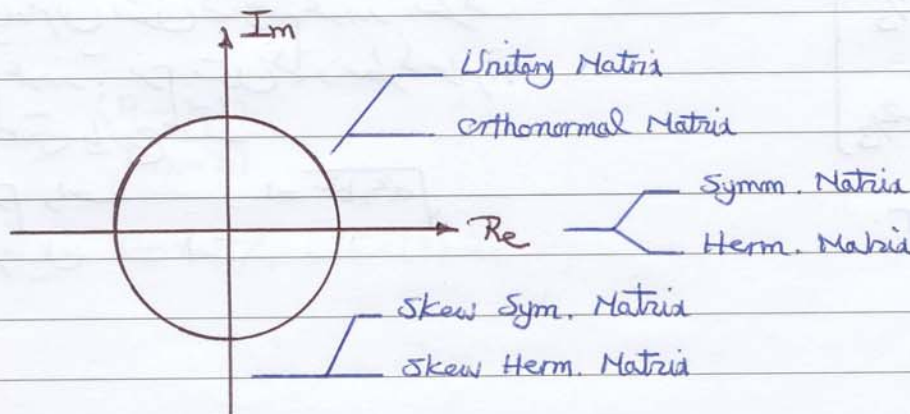 Im
Unitary Matrix
Orthonormal Matrix
Symm. Matrix
Re
Herm. Matrix
Skew Sym. Matrix
Skew Herm. Matrix